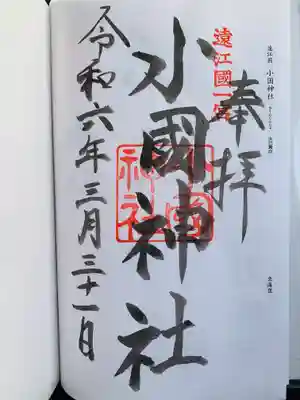 遠江國 小国神社
奉拝
遠江國一宮
小國神社
令和六年三月三十一日